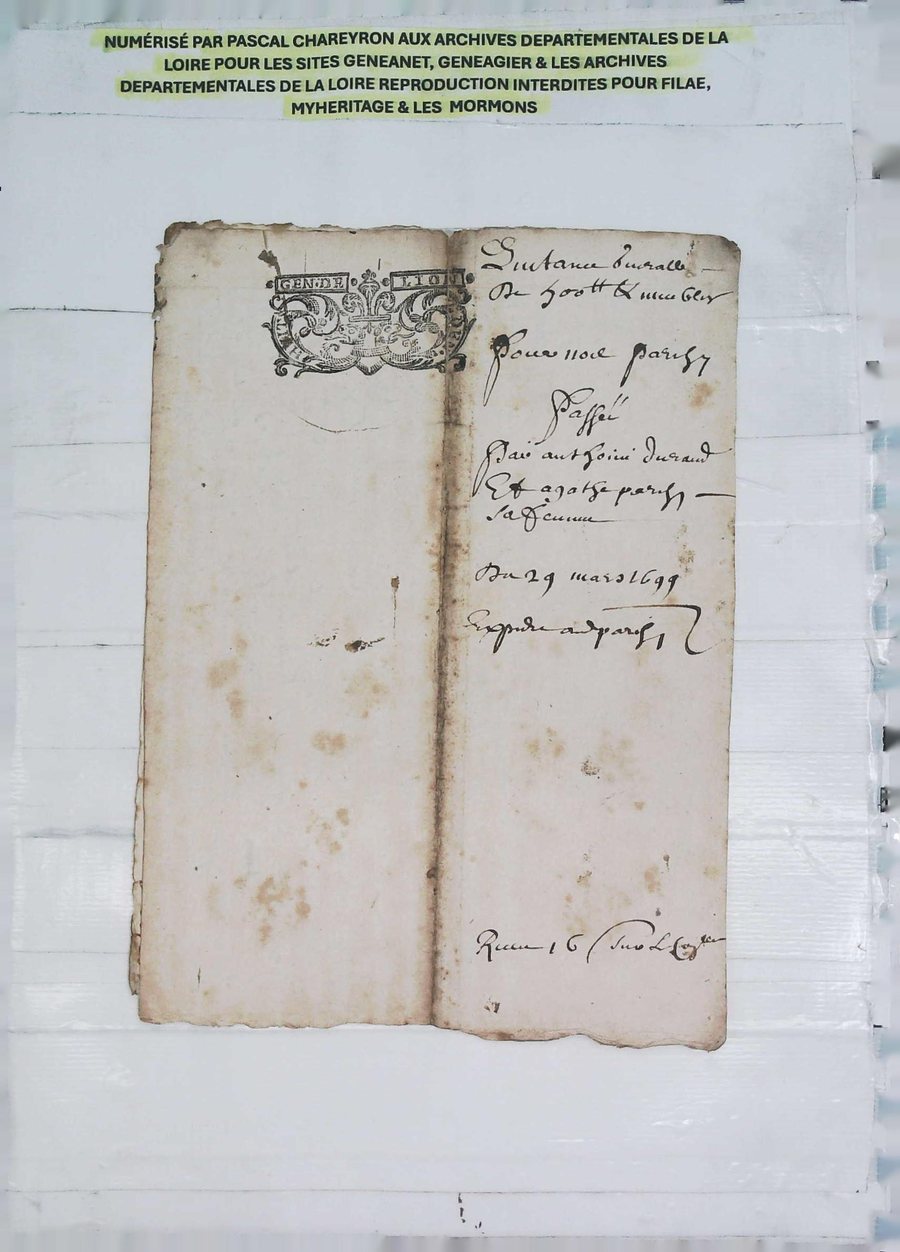 NUMÉRISÉ PAR PASCAL CHAREYRON AUX ARCHIVES DEPARTEMENTALES DE LA
LOIRE POUR LES SITES GENEANET, GENEAGIER & LES ARCHIVES
DEPARTEMENTALES DE LA LOIRE REPRODUCTION INTERDITES POUR FILAE,
MYHERITAGE & LES MORMONS
GEN·DE LION
Quitance
De 500ᵗᵗ & meubles
Pour noel parchy
Passeé
Par anthoine durand
Et agathe parchy
sa femme
Du 29 mars 1699
parch
16